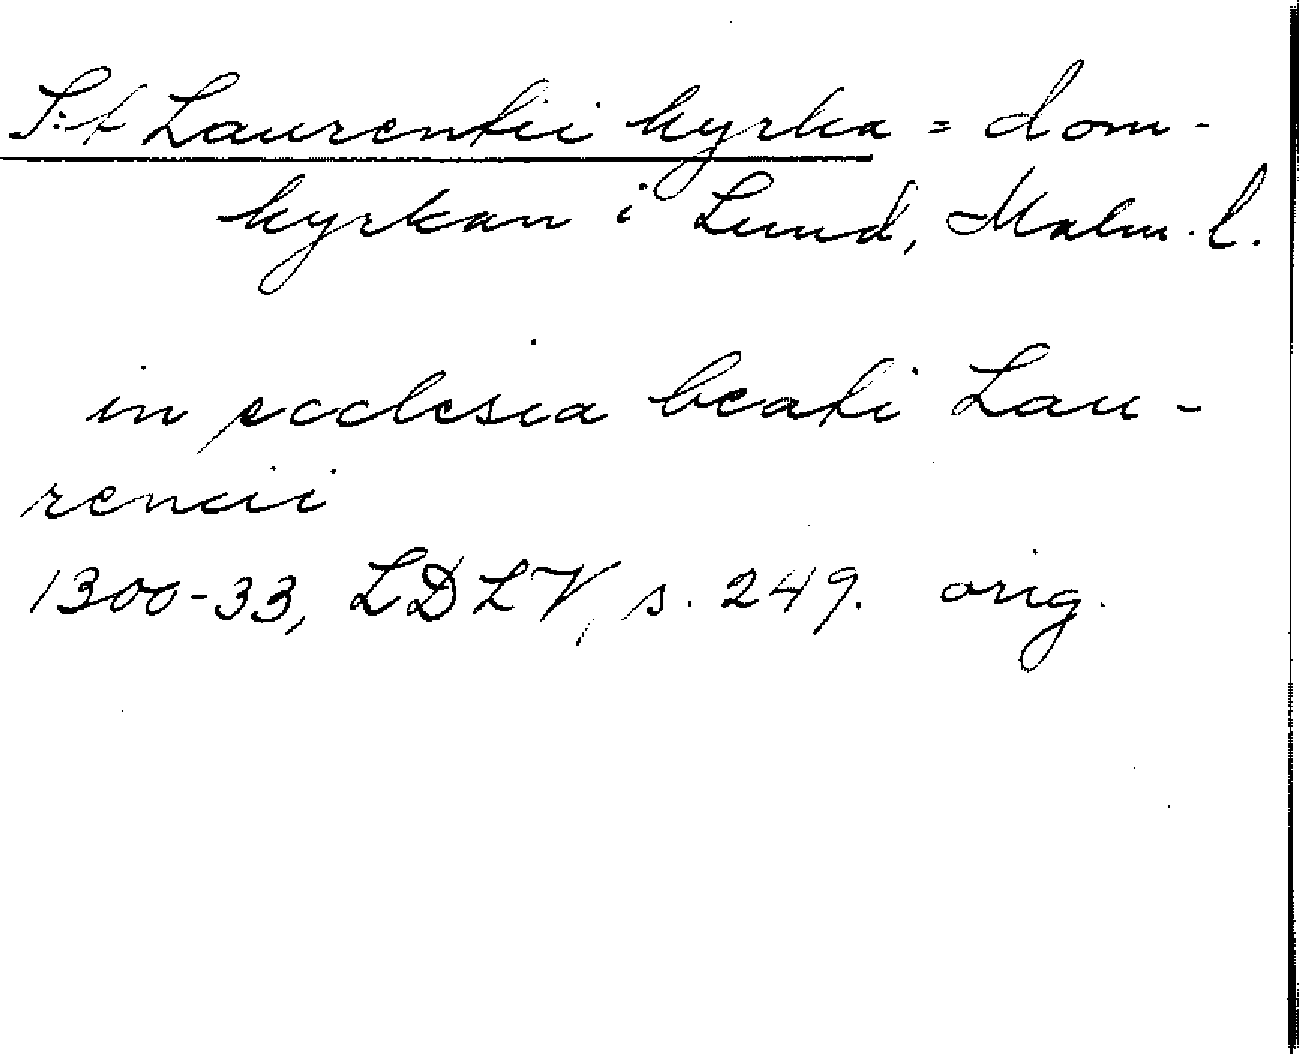 S:t Laurentii kyrka = dom-
kyrkan i Lund, Malm. l.
in ecclesia beati Lau-
rencii
1300-33, LDLV, s. 249. orig.